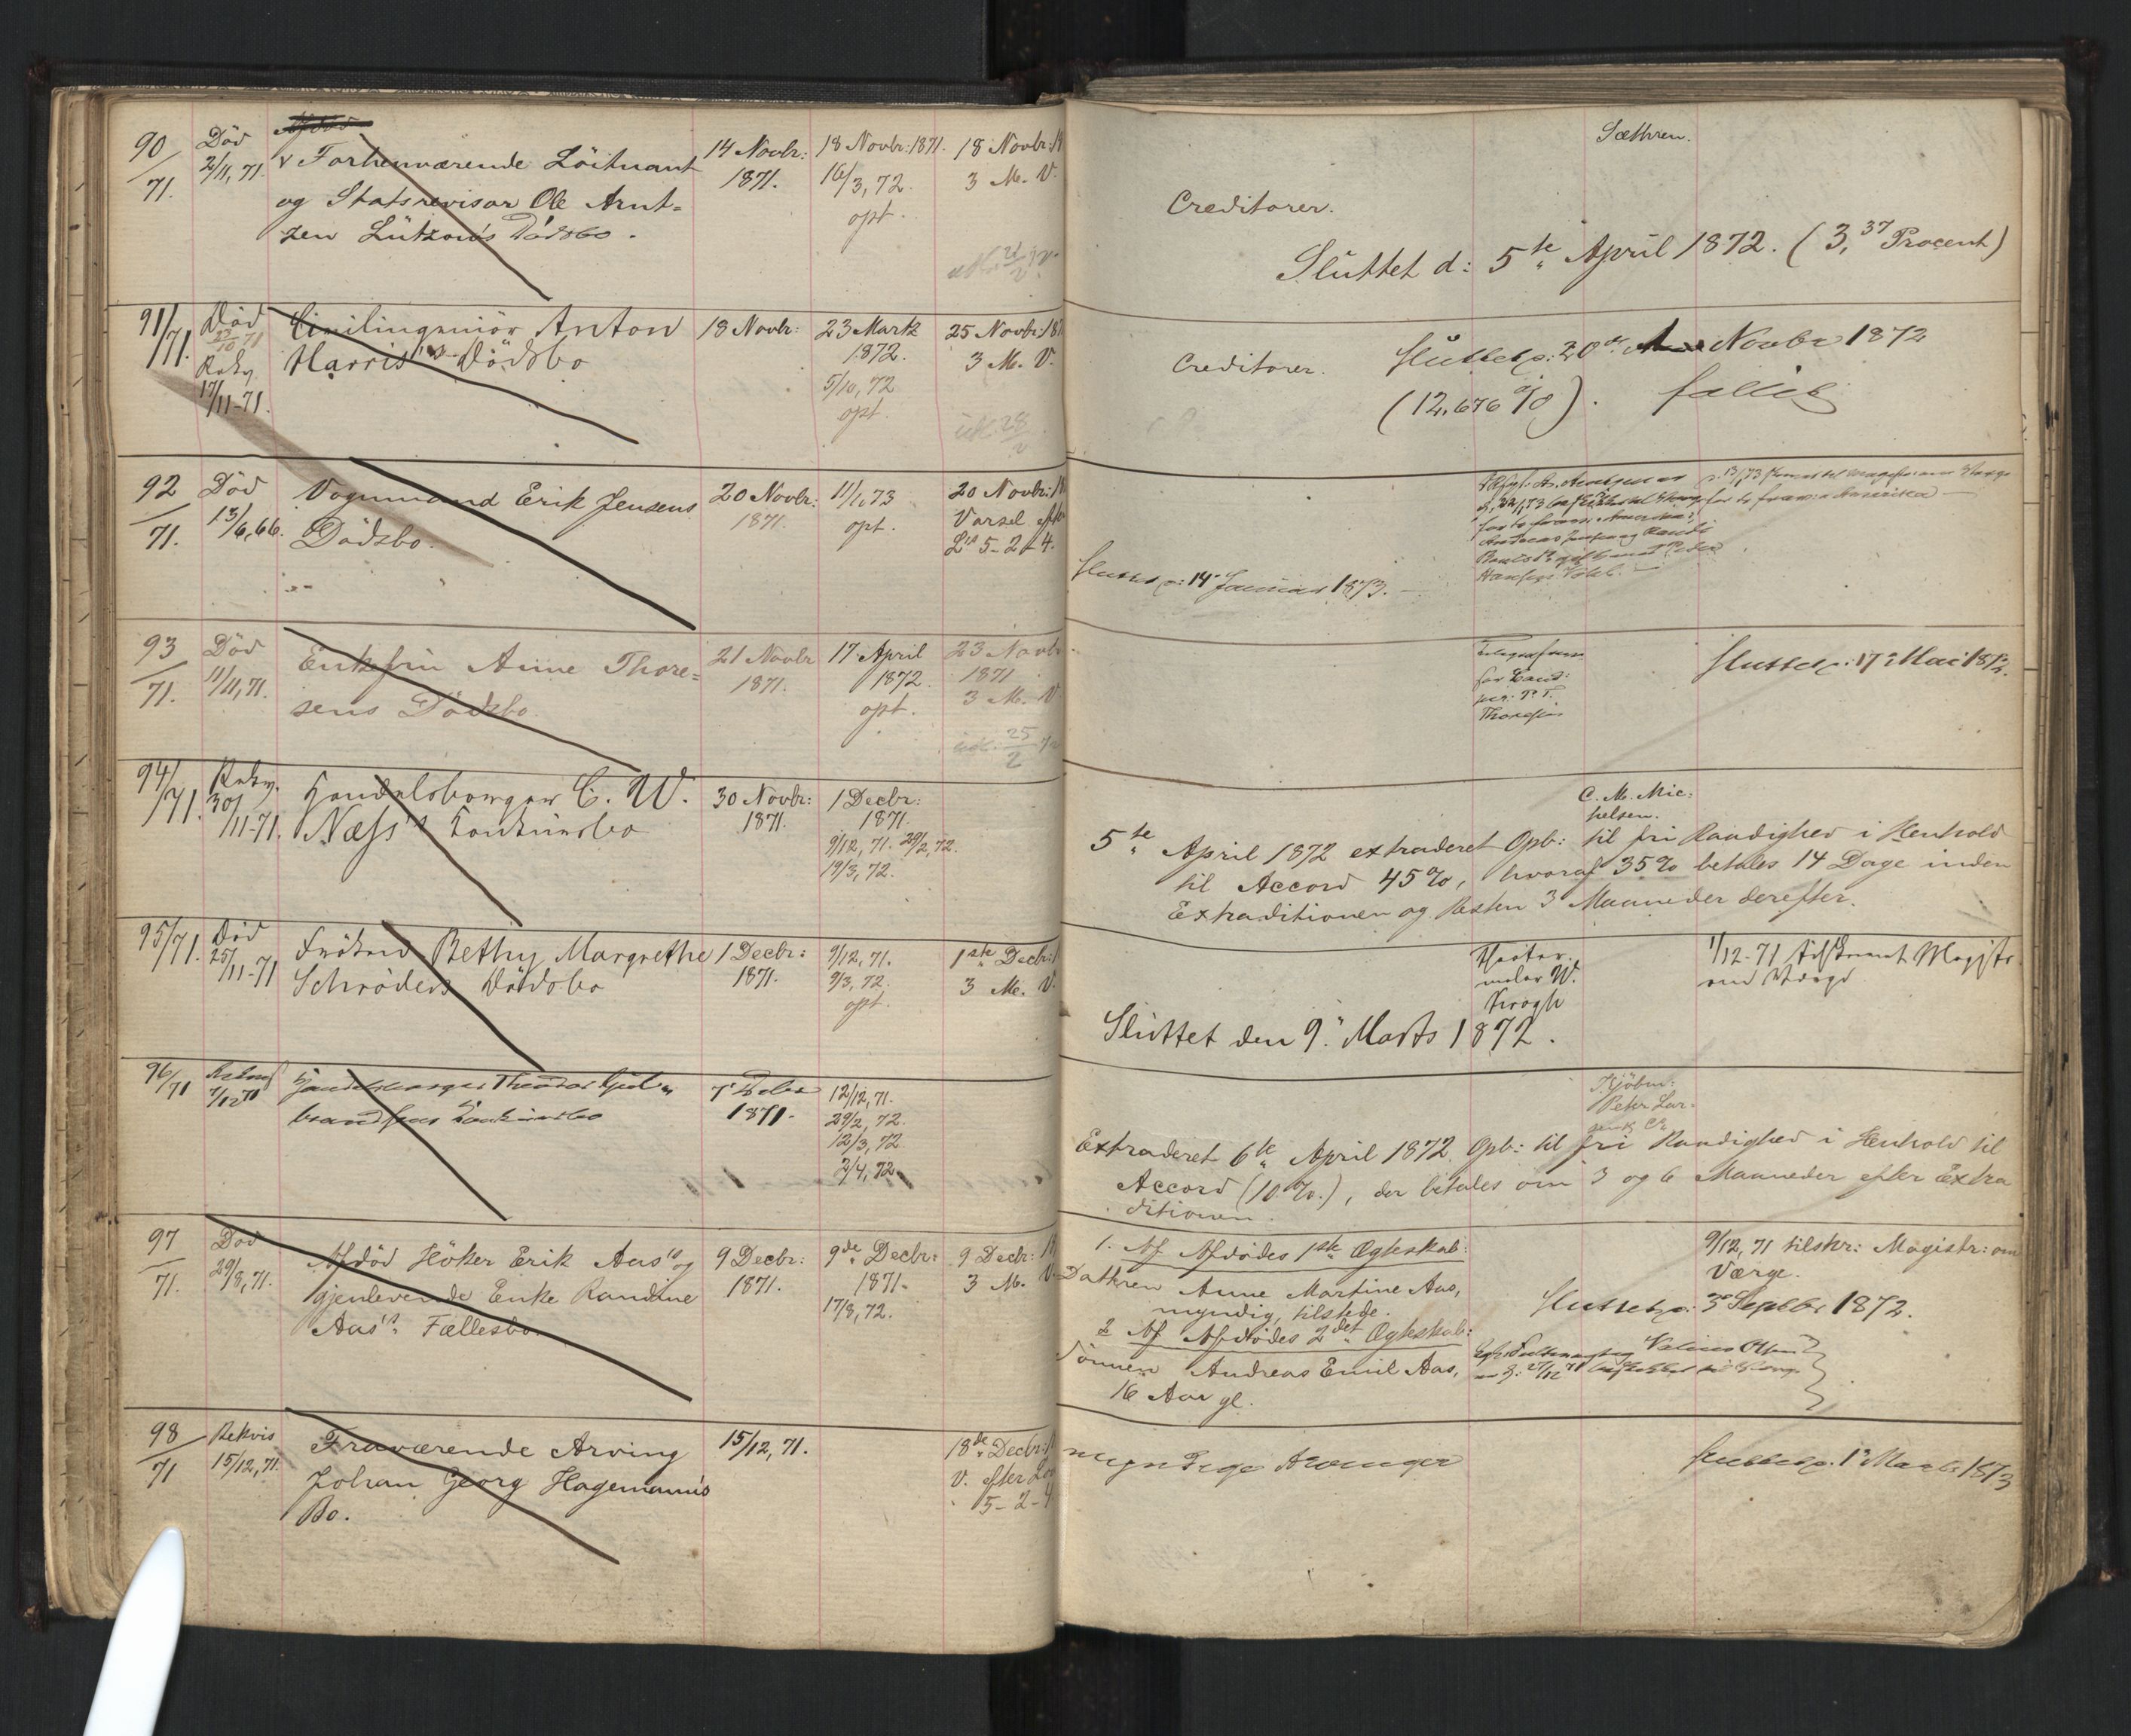 90
71.
Död
2/11, 71.
Forhenværende Löitnant
og Statsrevisor Ole Arnt-
zen Lützow's Dödsbo.
14 Novbr:
1871.
18 Novbr: 1871.
16/3, 72.
opt.
18 Novbr:
3 M. V.
Sæthren.
Creditorer.
Sluttet d: 5te April 1872. (3,37 Procent)
91/71.
Död
23/10 71
Rekv
17/11-71.
Civilingeniör Anton
Harris's Dödsbo
18 Novbr:
23 Marts
1872.
5/10, 72
opt.
25 Novbr: 187
3 M. V.
28/2
Creditorer.
Sluttet d: 20de Novbr 1872
(12,676 %). fallit
92
71.
Död
13/6, 66.
Vognmand Erik Jensens
Dödsbo.
20 Novbr:
1871.
11/1, 73
opt.
20 Novbr:
Varsel efter
L's 5-2-4.
Sluttet d: 14de Januar 1873.
93
71.
Död
11/11, 71.
Enkefru Anne Thore-
sens Dödsbo.
21 Novbr
1871.
17 April
1872.
opt.
23 Novbr
1871
3 M. V
25/2
for
Thoresen
Sluttet d: 17de Mai 1872.
94/71.
Rekv.
30/11-71.
Handelsborger C. W.
Næss's Konkursbo
30 Novbr:
1871.
1 Decbr:
1871.
9/12, 71. 29/2, 72.
19/3, 72.
C. M. Mic-
helsen.
5te April 1872 extraderet Opb: til fri Raadighed i Henhold
til Accord 45%, hvoraf 35% betales 14 Dage inden
Extraditionen og Resten 3 Maaneder derefter.
95/71.
Död
25/11-71
Fröken Bethy Margrethe
Schröders Dödsbo
1 Decbr:
1871.
9/12, 71.
9/3, 72.
opt.
1ste Decbr:
3 M. V.
maler W.
Krogh
1/12-71 tilskrevet Magistr.
om Værge
Sluttet den 9de Marts 1872.
96/71
7/12 71
Handelsborger Theodor Gul-
brandsens Konkursbo
7de Decbr
1871.
12/12, 71.
29/2, 72.
12/3, 72.
2/4, 72.
Kjöbm:
Peter Lar-
sen
Extraderet 6te April 1872. Opb: til fri Raadighed i Henhold til
Accord (10 %.), der betales om 3 og 6 Maaneder efter Extra
ditionen.
97
71.
Död
29/8, 71.
Afdöd Höker Erik Aas's og
gjenlevende Enke Randine
Aas's Fællesbo.
9 Decbr:
1871.
9de Decbr:
1871.
17/8, 72.
9 Decbr:
3 M. V.
1. Af Afdödes 1ste Ægteskab:
Dattren Anne Martine Aas,
myndig, tilstede.
2 Af Afdödes 2det Ægteskab:
Sönnen Andreas Emil Aas,
16 Aar gl.
9/12, 71 tilskr: Magistr: om
Værge.
Sluttet d: 3de Septbr 1872.
98
71
Rekvis
15/12, 71.
Fraværende Arving
Johan Georg Hagemann's
Bo.
15/12, 71.
18de Decbr:
V. efter Lov
5-2-4
myndige Arvinger
Sluttet d: 1ste Marts 1873